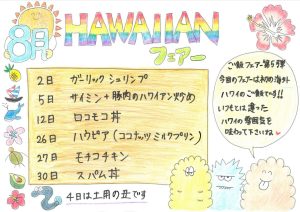 8月 HAWAIIAN
フェアー
2日 ガーリックシュリンプ
5日 サイミン+豚肉のハワイアン炒め
12日 ロコモコ丼
26日 ハウピア(ココナッツミルクプリン)
27日 モチコチキン
30日 スパム丼
4日は土用の丑です
ご飯フェアー第5弾
今回のフェアーは初の海外
ハワイのご飯です!!
いつもとは違った
ハワイの雰囲気を
味わって下さいね